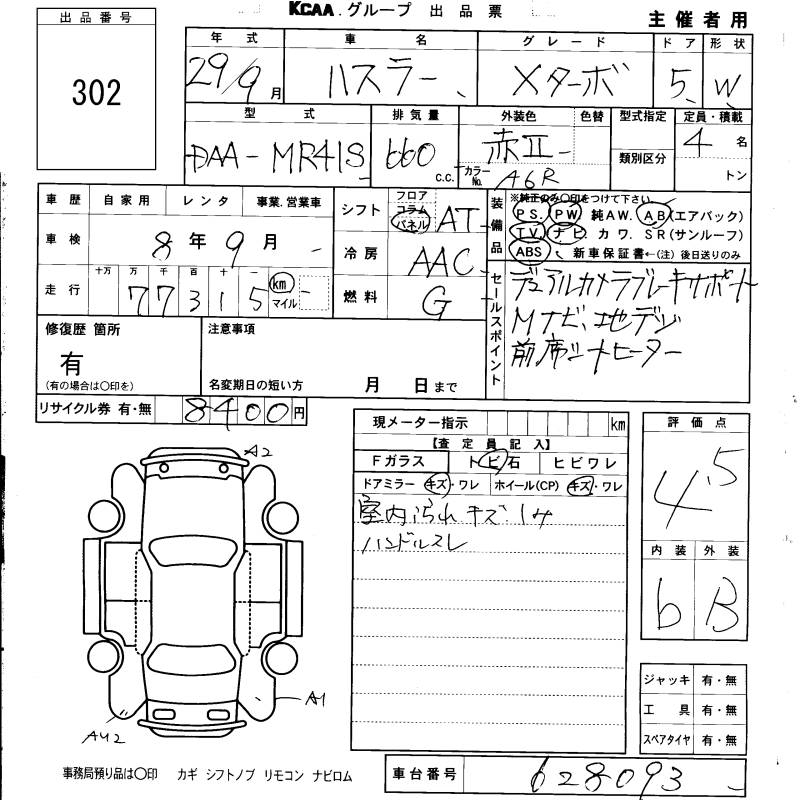 出品番号
302
KCAA.グループ 出品票
主催者用
年式 車名 グレード ドア 形状
29/9月 ハスラー Xターボ 5 W
型式 排気量 外装色 色替 型式指定 定員・積載
DAA-MR41S 660 C.C. 赤II 類別区分 4名
カラーNo. A6R トン
車歴 自家用 レンタ 事業.営業車
車検 8年9月
走行 十万 万 千 百 十 一
77315 km マイル
シフト フロア コラム パネル AT
冷房 AAC
燃料 G
装備品
※純正のみ〇印をつけて下さい
PS. PW 純AW. AB(エアバック)
TV. ナビ カワ. SR(サンルーフ)
ABS 新車保証書←(注)後日送りのみ
セールスポイント
デュアルカメラブレーキサポート
Mナビ、地デジ
前席シートヒーター
修復歴 箇所
有
(有の場合は〇印を)
注意事項
名変期日の短い方 月 日まで
リサイクル券 有・無 8400円
現メーター指示 km
【査定員記入】
Fガラス トビ石 ヒビワレ
ドアミラー キズ・ワレ ホイール(CP) キズ・ワレ
室内汚れ キズ.しみ
ハンドルスレ
評価点
4.5
内装 外装
b B
A2
A1
AU2
ジャッキ 有・無
工具 有・無
スペアタイヤ 有・無
事務局預り品は〇印 カギ シフトノブ リモコン ナビロム
車台番号 628093